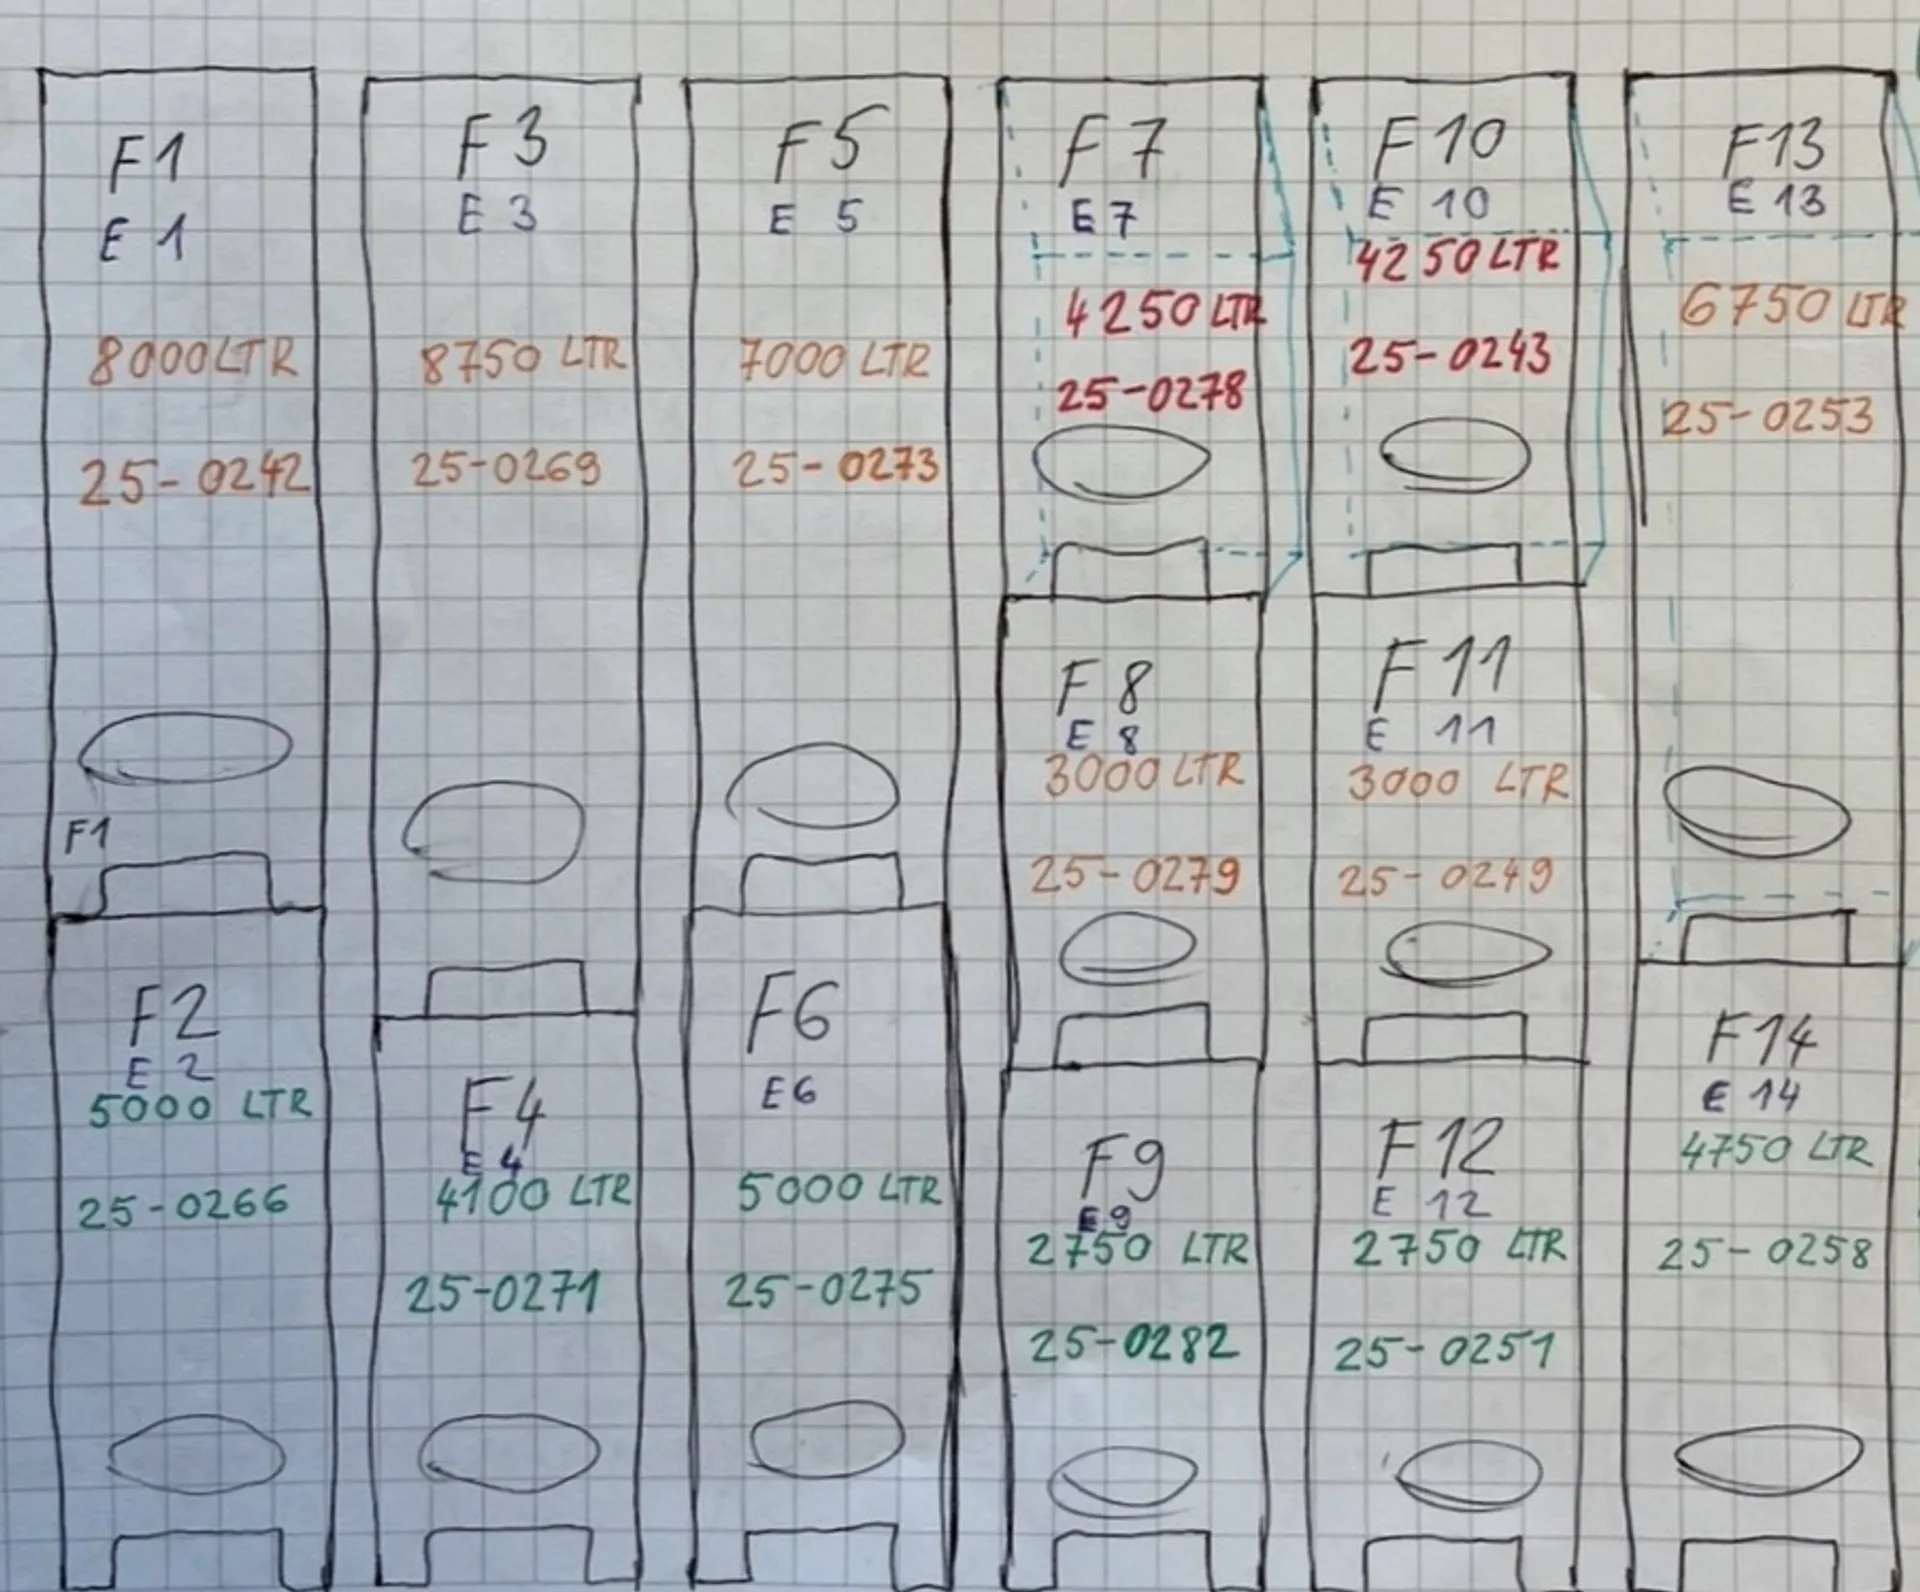 F1
E 1
8000 LTR
25-0242
F1
F2
E 2
5000 LTR
25-0266
F3
E 3
8750 LTR
25-0269
F4
E 4
4100 LTR
25-0271
F5
E 5
7000 LTR
25-0273
F6
E6
5000 LTR
25-0275
F7
E7
4250 LTR
25-0278
F8
E 8
3000 LTR
25-0279
F9
E9
2750 LTR
25-0282
F10
E 10
4250 LTR
25-0243
F11
E 11
3000 LTR
25-0249
F12
E 12
2750 LTR
25-0251
F13
E 13
6750 LTR
25-0253
F14
E 14
4750 LTR
25-0258